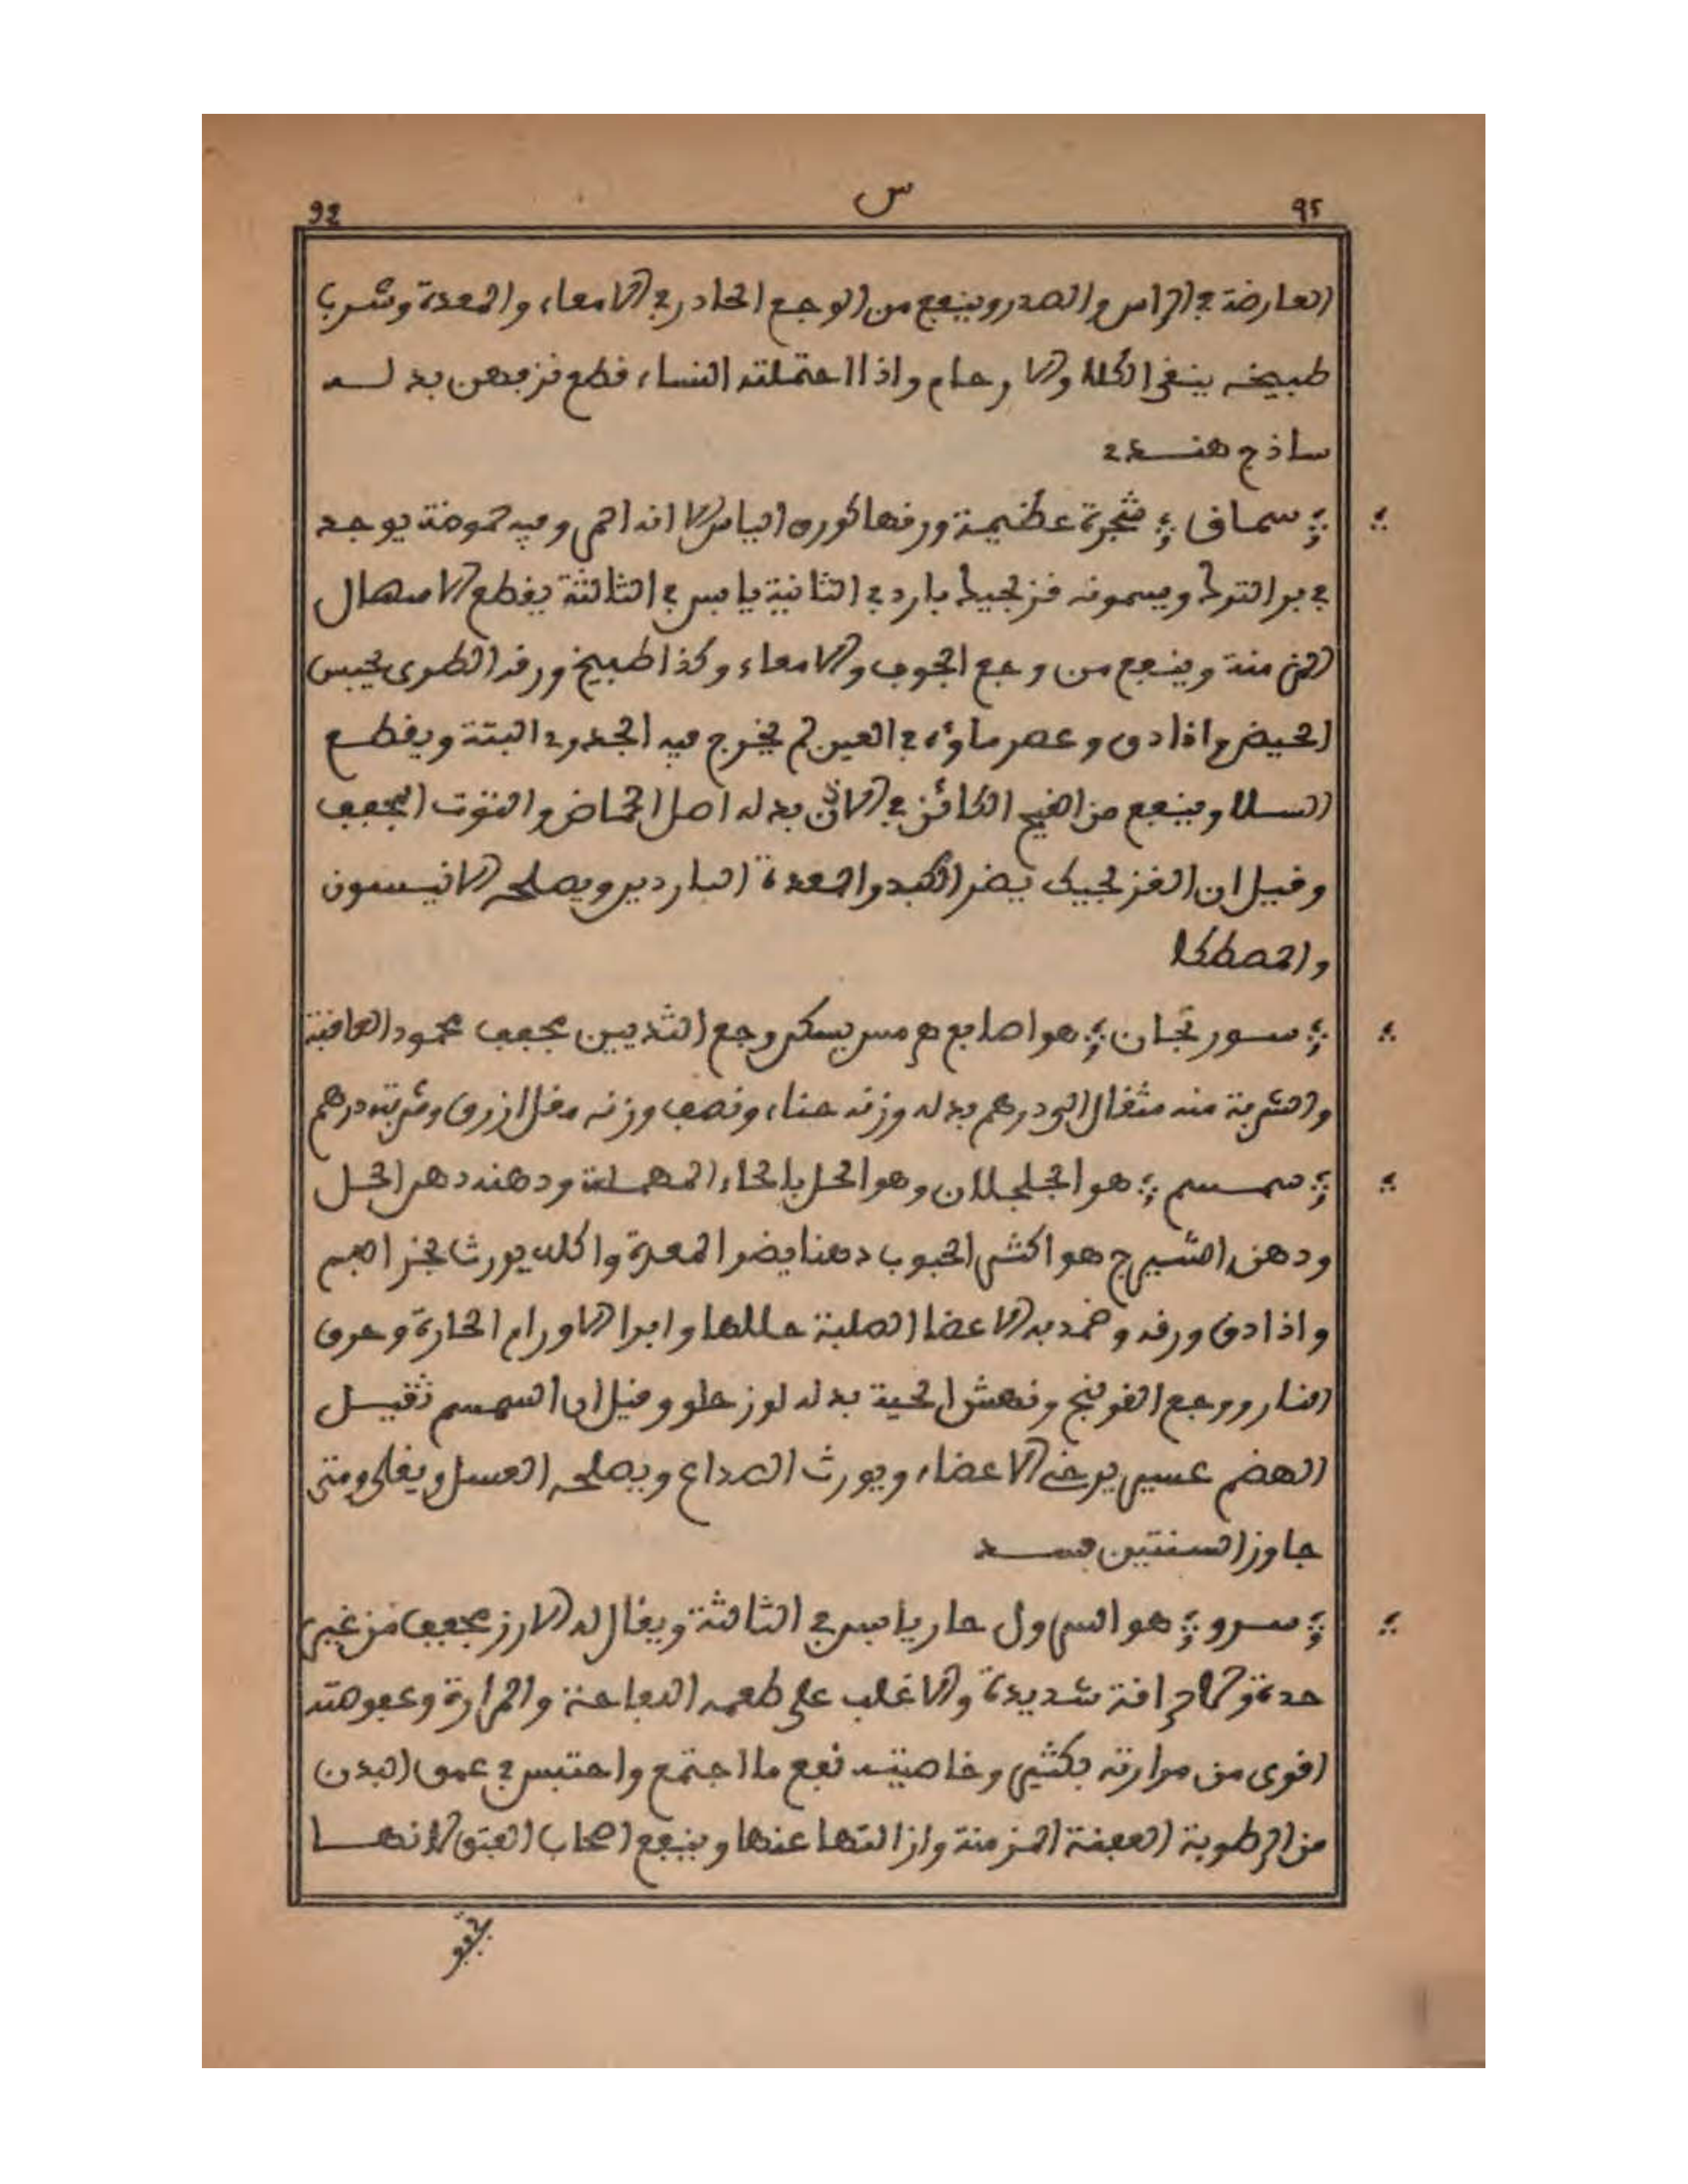 92 س ٩٢
العارضة في الراس والصدر وينفع من الوجع الحادر في الامعاء والمعدة وشرب
طبيخه ينقي الكلا والارحام واذا احتملته النساء قطع نزفهن بدله
ساذج هندي
؛ سماق ؛ شجرة عظيمة ورقها كورق الياس الا انه احمر وفيه حموضة يوجد
في بر الترك ويسمونه قزلجيك بارد في الثانية يابس في الثالثة يقطع الاسهال
المزمنة وينفع من وجع الجوف والامعاء وكذا طبيخ ورقه الطرى يحبس
الحيض واذا دق وعصر ماؤه في العين لم يخرج فيه الجدري البتة ويقطع
السلا وينفع من القيح الكائن في الاذن بدله اصل الحماض والتوت المجفف
وقيل ان القزلجيك يضر الكبد والمعدة الباردين ويصلحه الانيسون
والمصطكا
؛ سورنجان ؛ هو اصابع هرمس يسكن وجع الثديين مجفف محمود العاقبة
والشربة منه مثقال الى درهم بدله وزنه حناء ونصف وزنه مقل ازرق وشربته درهم
؛ سمسم ؛ هو الجلجلان وهو الحل بالحاء المهملة ودهنه دهن الحل
ودهن الشيرج هو اكثر الحبوب دهنا يضر المعدة واكله يورث بخر الفم
واذا دق ورقه وضمد به الاعضا الصلبة حللها وابرا الاورام الحارة وحرق
النار ووجع القولنج ونهش الحية بدله لوز حلو وقيل ان السمسم ثقيل
الهضم عسير يرخي الاعضاء ويورث الصداع ويصلحه العسل ويقلى ومتى
جاوز السنتين فسد
؛ سرو ؛ هو السرول حار يابس في الثالثة ويقال له الارز مجفف من غير
حدة ولا حرافة شديدة والاغلب على طعمه العفاصة والمرارة وعفوصته
اقوى من مرارته بكثير وخاصيته نفع ما اجتمع واحتبس في عمق البدن
من الرطوبة العفنة المزمنة وازالتها عنها وينفع اصحاب الفتق لانها
تجفف